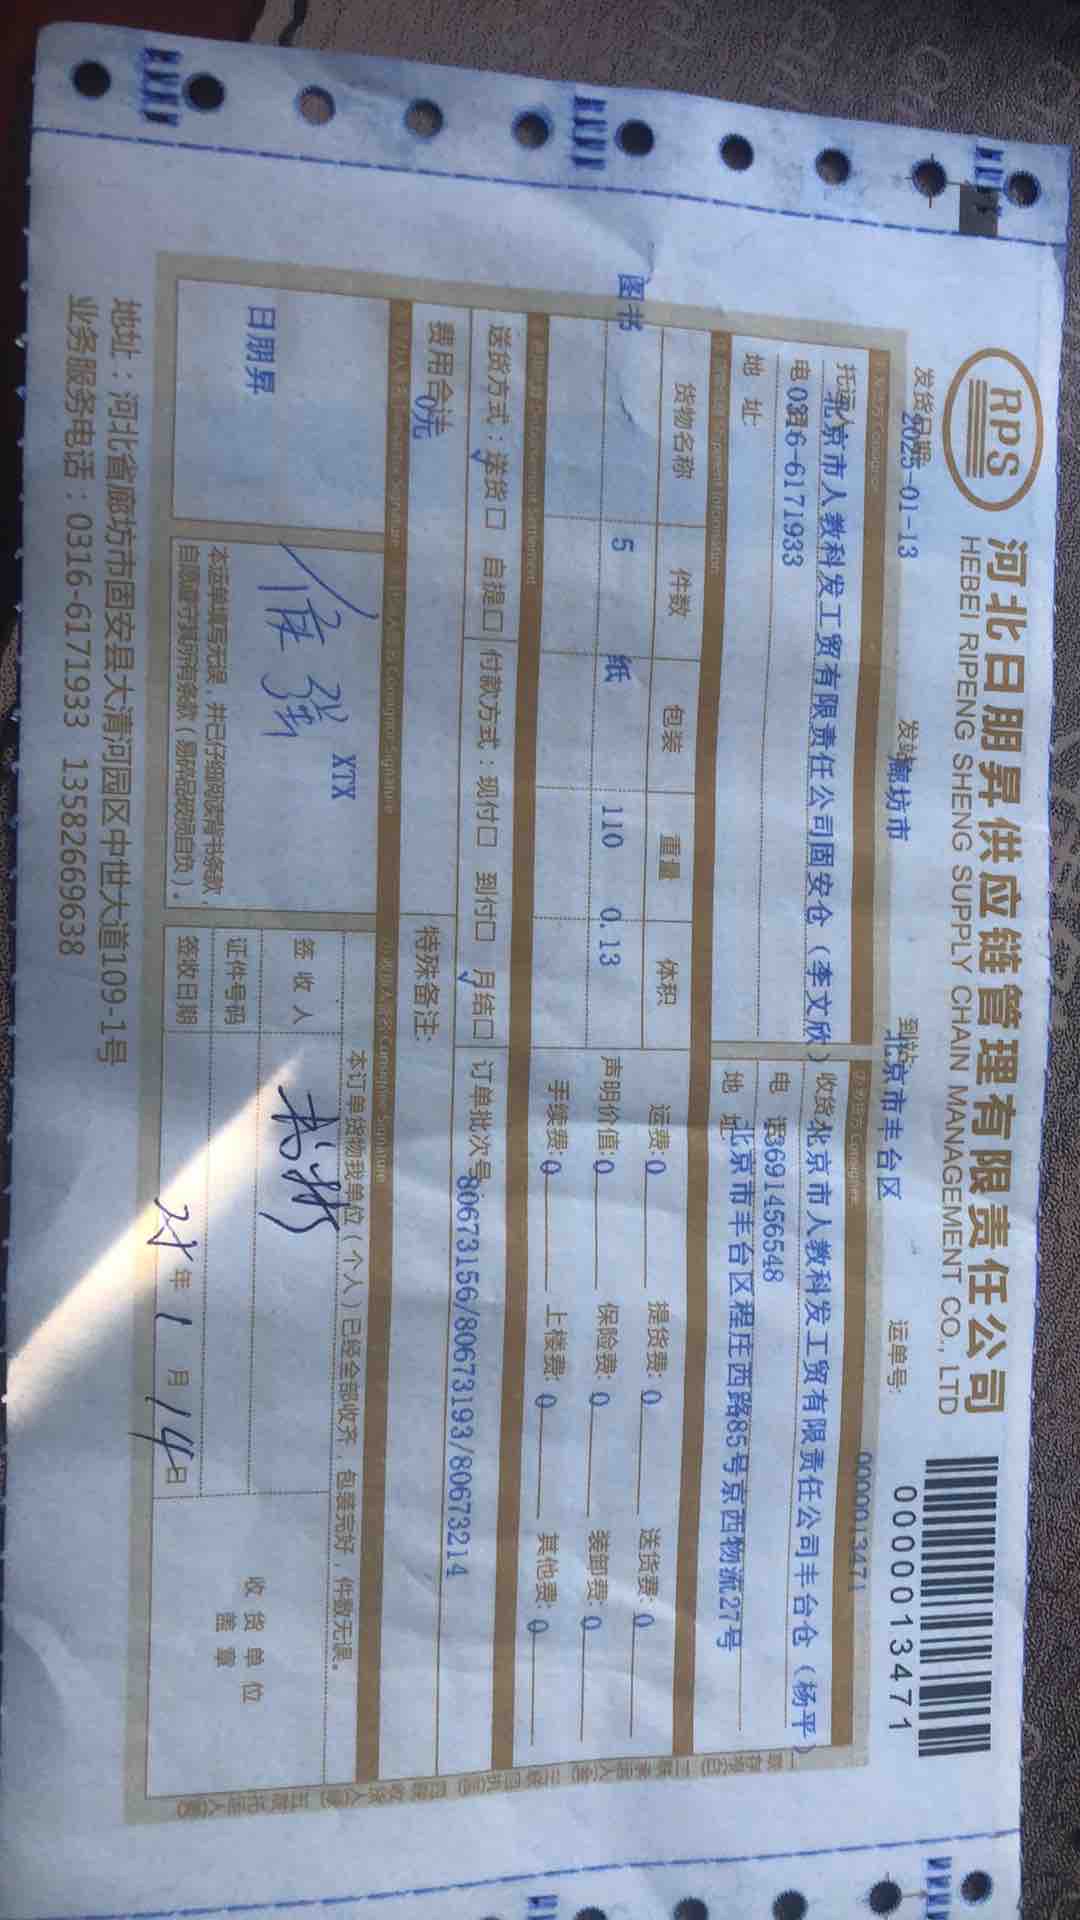 RPS
河北日朋昇供应链管理有限责任公司
HEBEI RIPENG SHENG SUPPLY CHAIN MANAGEMENT CO., LTD
0000013471
发货日期: 2025-01-13 发站: 廊坊市 到站: 北京市丰台区 运单号: 0000013471
托运人 北京市人教科发工贸有限责任公司固安仓（李文欣）
电话 0316-6171933
地 址
收货人 北京市人教科发工贸有限责任公司丰台仓（杨平）
电 话 13691456548
地 址 北京市丰台区程庄西路85号京西物流27号
货物名称 件数 包装 重量 体积
图书 5 纸 110 0.13
运费: 0 提货费: 0 送货费: 0
声明价值: 0 保险费: 0 装卸费: 0
手续费: 0 上楼费: 0 其他费: 0
送货方式：送货□ 自提□ 付款方式：现付□ 到付□ 月结□ 订单批次号: 80673156/80673193/80673214
费用合计: 0元
特殊备注:
Consignor Signature
Consignee Signature
日朋昇
XTX
本运单填写无误，并已仔细阅读背书条款，
自愿遵守其所有条款（易碎品破损自负）。
本订单货物我单位（个人）已经全部收齐，包装完好，件数无误。
签 收 人
证件号码
签收日期 25年 1 月 14日
收 货 单 位
盖 章
地址：河北省廊坊市固安县大清河园区中世大道109-1号
业务服务电话：0316-6171933 13582669638